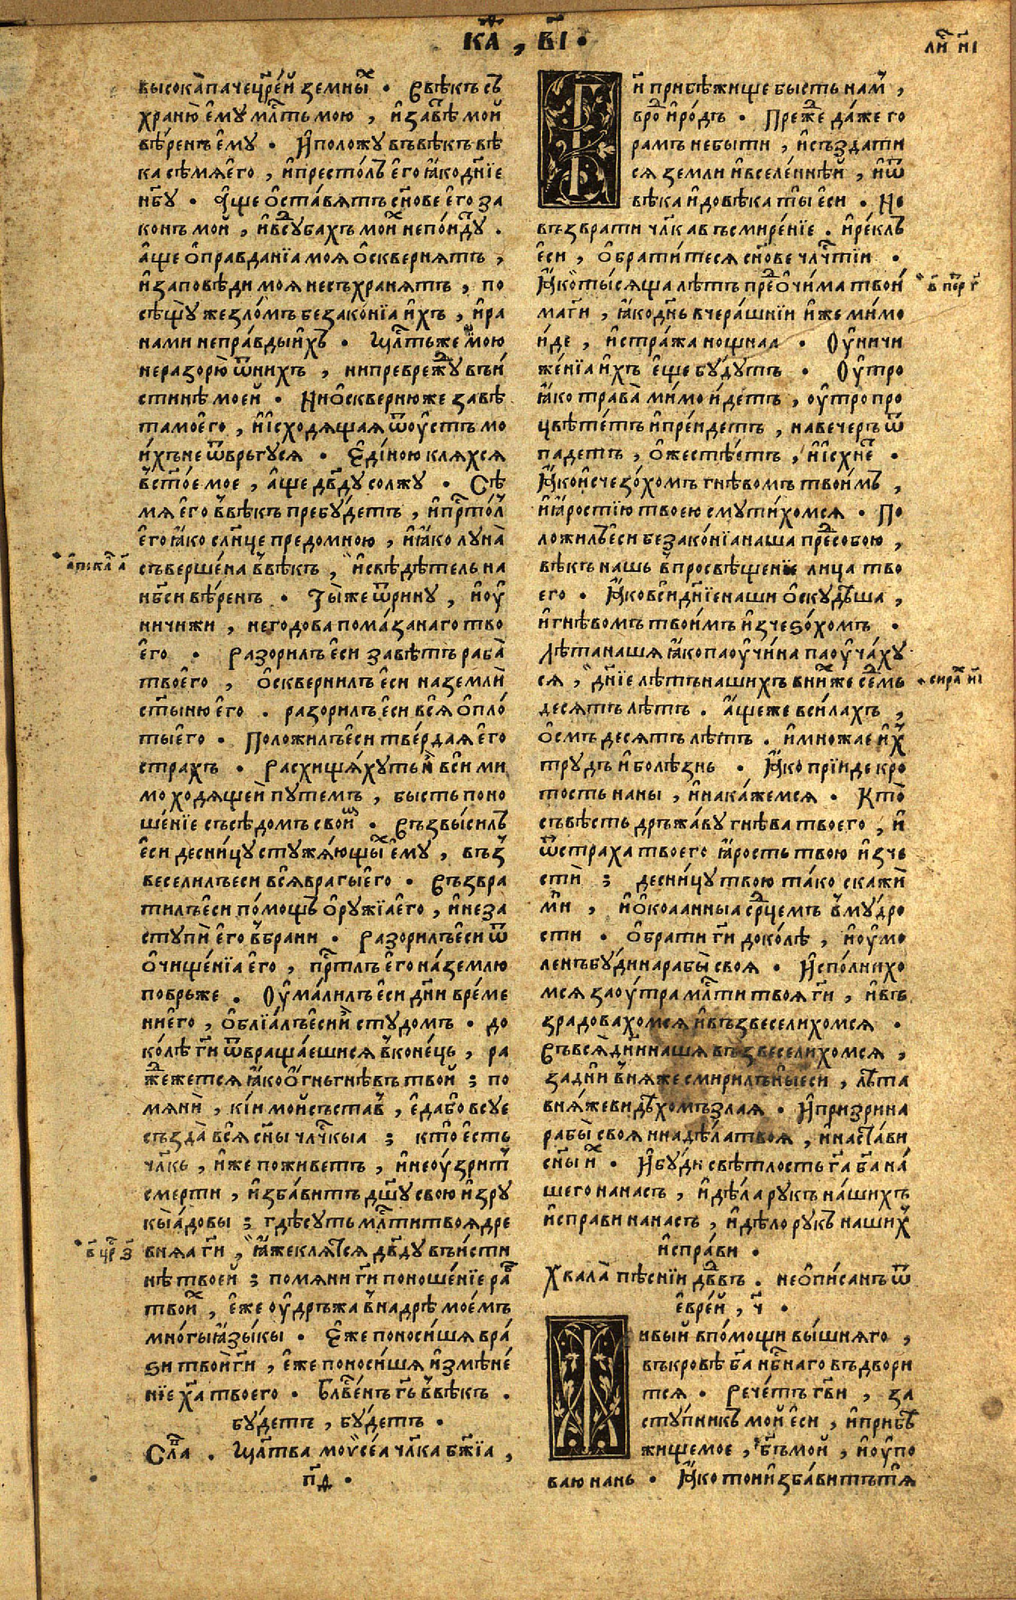 КА҃ , ВІ҃ .
ли҃ н҃і
высока̀ паче цр҃е́й земны́хъ . Въвѣкъ съ
храню̀ ему̀ мл҃ть мою , и҆ завѣ́ мой
вѣ́ренъ ему̀ . И҆ положу въвѣкъ вѣ
ка сѣмя е҆го , и҆ престо́лъ е҆го ꙗ҆́ко дн҃іе
нб҃у . А҆́ще ѡ҆ста́вятъ сн҃ове е҆го за
конъ мо́й , и҆ въ сꙋбахъ мои́хъ непо́йдꙋ .
а҆́ще ѻ҆правданїа моя ѻ҆сквернятъ ,
и҆ заповѣди моя несъхранятъ , по
сѣщꙋ жезло́мъ безако́нїа и҆́хъ , и҆ ра
нами непра́вды и҆́хъ . Мл҃ть же мою
неразорю̀ ѿ ни́хъ , ни превреждꙋ въ и҆́
стинѣ мое́й . Ни ѻ҆сквернюже завѣ
та моего̀ , и҆ и҆сходящая ѿ ѹ҆́стъ мо
и́хъ не ѿвръгꙋся . Е҆ди́ною кляхся
ѡ҆ ст҃ѣ́мъ мое , а҆́ще дв҃дꙋ солжꙋ . Сѣ
мя е҆го въвѣкъ пребꙋ́детъ , и҆ прⷭ҇то́л
е҆го ꙗ҆́ко сл҃нце предомною , и҆ ꙗ҆́ко лꙋна̀
съвершена въвѣкъ , и҆ свѣдѣтель на
нб҃си вѣ́ренъ . Ты́же ѿри́нꙋ , и҆ ѹ҆
ничижи , негодова пома́занаго тво
е҆го . Разори́лъ е҆си завѣ́тъ раба̀
твоего̀ , ѻ҆скверни́лъ е҆си на землѝ
ст҃ыню е҆го . разори́лъ е҆си вся ѻ҆пло
ты е҆го . Положи́лъ е҆си тве́рдая е҆го
страхъ . Расхищахꙋ́ть и҆̀ вси ми
моходящей пꙋте́мъ , бысть поно
ше́нїе съсѣдомъ свои́мъ . Възвы́силъ
е҆си десницꙋ стꙋжа́ющыхъ е҆мꙋ , въз
весели́лъ е҆си вся враги е҆го . Възвра
ти́лъ е҆си по́мощъ ѻ҆рꙋжїа е҆го , и҆ неза
стꙋпѝ е҆го въ бра́ни . Разори́лъ е҆си ѿ
ѻ҆чище́нїа е҆го , прⷭ҇то́лъ е҆го на́ землю
повръже . Ѹ҆ма́лилъ е҆си дн҃и вре́ме
ни е҆го , ѻ҆блїа́лъ е҆сий стꙋдо́мъ . до
ко́лѣ гд҃и ѿвраща́ешися въ коне́ць , ра
жежется ꙗ҆́ко ѻ҆гнь гнѣ́въ твой ; по
мянѝ , кі́и мой съста́въ , е҆да́ бо всꙋе
създа̀ вся сн҃ы члч҃кыа ; кто̀ е҆́сть
чл҃къ , и҆́же поживетъ , и҆ неѹ҆зри́тъ
сме́рти , и҆зба́витъ дш҃ꙋ свою̀ и҆зрꙋ
кы а҆́довы ; гдѣ сꙋть мл҃ти твоя дре
вняа гд҃и , ꙗ҆́же кля́тся дв҃дꙋ въ и҆сти
нѣ твое́й ; помяни гд҃и поноше́нїе ра҃
твои́хъ , е҆́же ѹ҆дръжа въ надрѣ мое́мъ
мно́гы ꙗ҆зы́кы . Е҆́же поноси́ша вра
ѕи твои гд҃и , е҆́же поноси́ша и҆змѣне́
нїе хр҃та твоего . Блв҃е́нъ гд҃ь въвѣкъ .
бꙋдетъ , бꙋдетъ .
Сла҃ . Мл҃тва моѵ̈се́а чл҃ка бж҃їа ,
п҃ѳ .
а҆пока҃л а҃
в҃ цр҃ з҃
Гд҃и прибѣ́жище бысть на́мъ ,
в родъ и҆ ро́дъ . Пре́жде да́же го
ра́мъ небы́ти , и҆ създати
ся земли и҆ вселе́ннѣй , и҆ ѿ
вѣка и҆ до вѣка ты̀ е҆си . Не
възврати чл҃ка въ смире́нїе . и҆ ре́клъ
е҆си , ѻ҆брати́теся сн҃ове члч҃тїи .
Ꙗ҆́ко ты́сяща лѣтъ пред ѻ҆чи́ма твои́
ма гд҃и , ꙗ҆́ко дн҃ь вчера́шнїи и҆́же мимо
и҆́де , и҆ стра́жа нощнаа . Ѹ҆ничи
же́нїа и҆́хъ е҆ще бꙋ́дꙋтъ . Ѹ҆́тро
ꙗ҆́ко трава̀ ми́мо и҆́детъ , ѹ҆́тро про
цвѣте́тъ и҆ пре́идетъ , на вечеръ ѿ
паде́тъ , ѻ҆жестѣетъ , и҆ и҆́схнетъ .
Ꙗ҆́ко и҆счезо́хомъ гнѣ́вомъ твои́мъ ,
и҆ ꙗ҆́ростїю твоею смꙋти́хомся . По
ложи́лъ е҆си безако́нїа наша пред собою ,
вѣкъ нашь въ просвѣще́нїе лица тво
его . Ꙗ҆́ко вси дн҃їе наши ѻ҆скꙋдѣша ,
и҆ гнѣ́вомъ твои́мъ и҆зчезо́хомъ .
Лѣта наша ꙗ҆́ко паѹчина паѹча́хꙋ
ся , дн҃їе лѣтъ нашихъ в ни́хже се́дмь
десятъ лѣтъ . а҆́щеже в си́лахъ ,
ѻ҆смъ деся́тъ лѣ́тъ . и҆ множае и҆́хъ
трꙋдъ и҆ болѣ́знь . Ꙗ҆́ко прїи́де кро
тость на ны , и҆ нака́жемся . Кто̀
съвѣ́сть дръжа́вꙋ гнѣ́ва твоего , и҆
ѿ стра́ха твоего ꙗ҆́рость твою и҆зче
стѝ ; десни́цꙋ твою та́ко скажѝ
ми , и҆ ѻ҆кованныа ср҃цемъ в мꙋдро
сти . ѻ҆брати гд҃и доко́лѣ , и҆ ѹ҆мо
ле́нъ бꙋ́ди на рабы̀ своя . И҆спо́лнихо
мся заѹ҆́тра мл҃ти твоя гд҃и , и҆ въ
зра́довахомся и҆ възвесели́хомся .
Въ вся дн҃и наша възвесели́хомся ,
за дн҃и в няже смири́лъ ны е҆си , лѣ́та
в няже ви́дѣхомъ злая . И҆ при́зри на
рабы̀ своя и҆ на дѣла твоя , и҆ наста́ви
сн҃ы и҆́хъ . И҆ бꙋ́ди свѣ́тлость гд҃а бг҃а на́
шего на на́съ , и҆ дѣ́ла рꙋкъ на́шихъ
и҆справи на на́съ , и҆ дѣ́ло рꙋкъ на́шихъ
и҆спра́ви .
Хвала̀ пѣ́снїи дв҃двъ . неѻ҆писанъ ѿ
е҆вре́й , ч҃ .
Живый в по́мощи вы́шняго ,
въ кро́вѣ бг҃а нб҃наго въдвори
тся . Рече́тъ гд҃ви , за
стꙋ́пникъ мо́й е҆си , и҆ прибѣ́
жище мое , бг҃ъ мой , и҆ ѹ҆по
ваю на́нь . Ꙗ҆́ко то́й и҆зба́витъ тя
в҃ пе҃т г҃
сира҃х н҃і